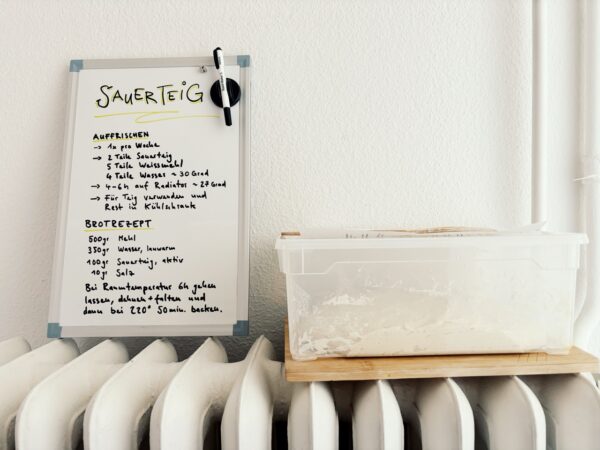 SAUERTEiG
AUFFRISCHEN
→ 1x pro Woche
→ 2 Teile Sauerteig
5 Teile Weissmehl
4 Teile Wasser ~ 30 Grad
→ 4-6h auf Radiator ~ 27 Grad
→ Für Teig verwenden und
Rest in Kühlschrank
BROTREZEPT
500gr Mehl
350gr Wasser, lauwarm
100gr Sauerteig, aktiv
10gr Salz
Bei Raumtemperatur 6h gehen
lassen, dehnen + falten und
dann bei 220° 50 min. backen.